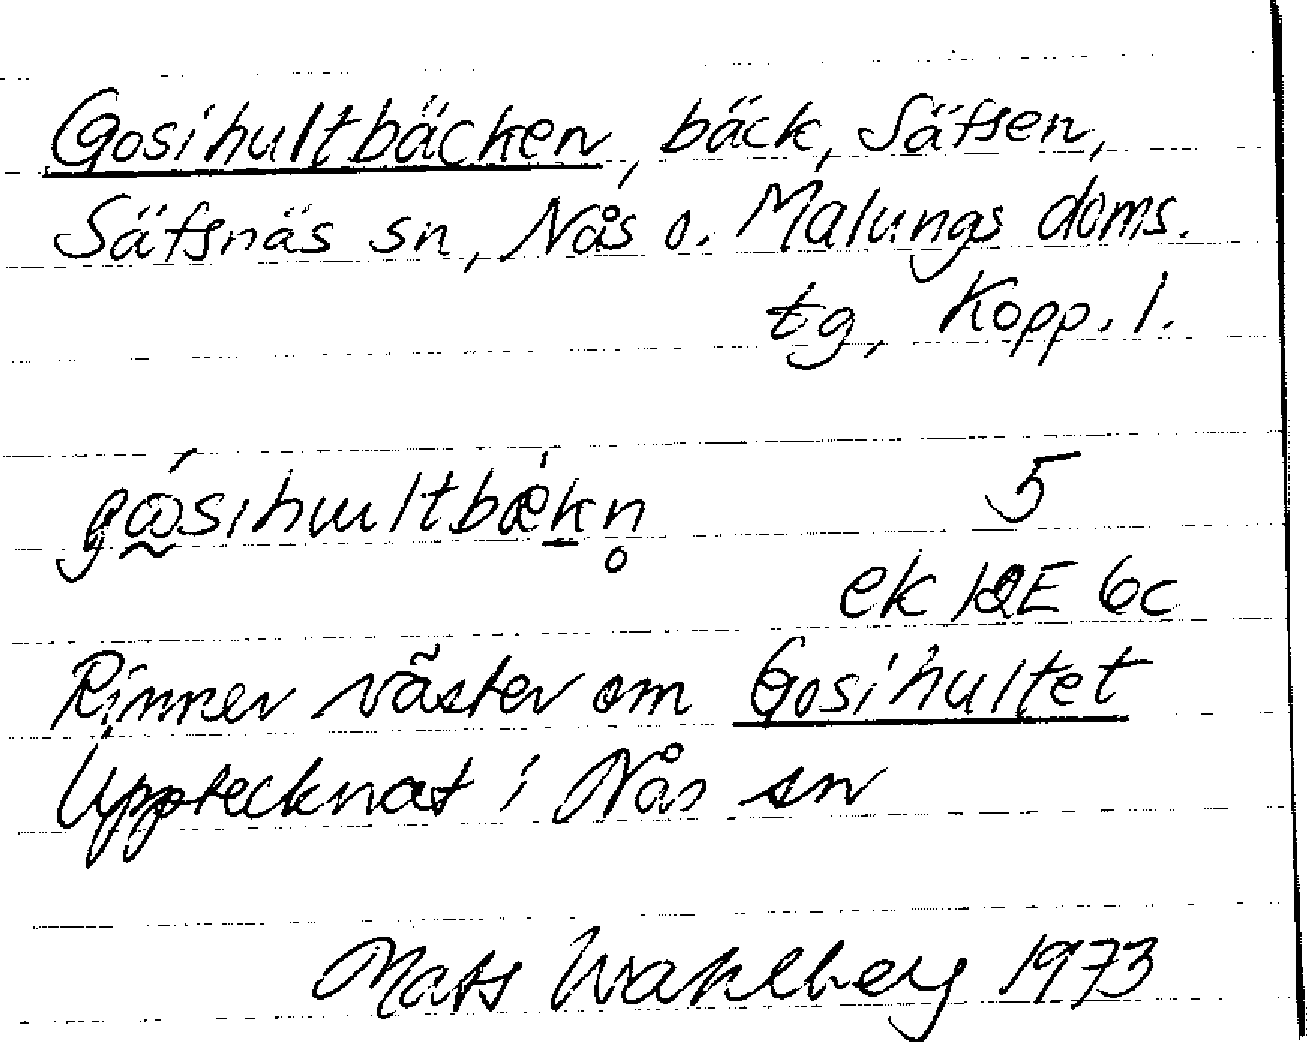 Gosihultbäcken, bäck, Säfsen,
Säfsnäs sn, Nås o. Malungs doms.
tg, Kopp. l.
5
ek 12E 6c
Rinner väster om Gosihultet
Upptecknat i Nås sn
Mats Wahlberg 1973